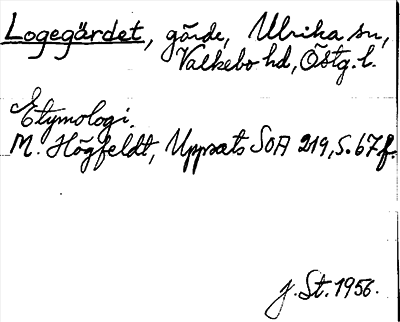 Logegärdet, gärde, Ulrika sn,
Valkebo hd, Östg. l.
Etymologi.
M. Högfeldt, Uppsats SOA 219, s. 67 f.
J. St. 1956.